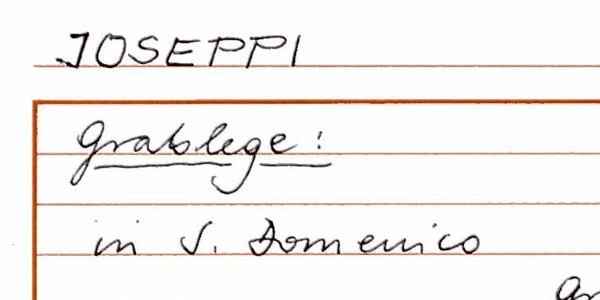 JOSEPPI
Grablege:
in S. Domenico